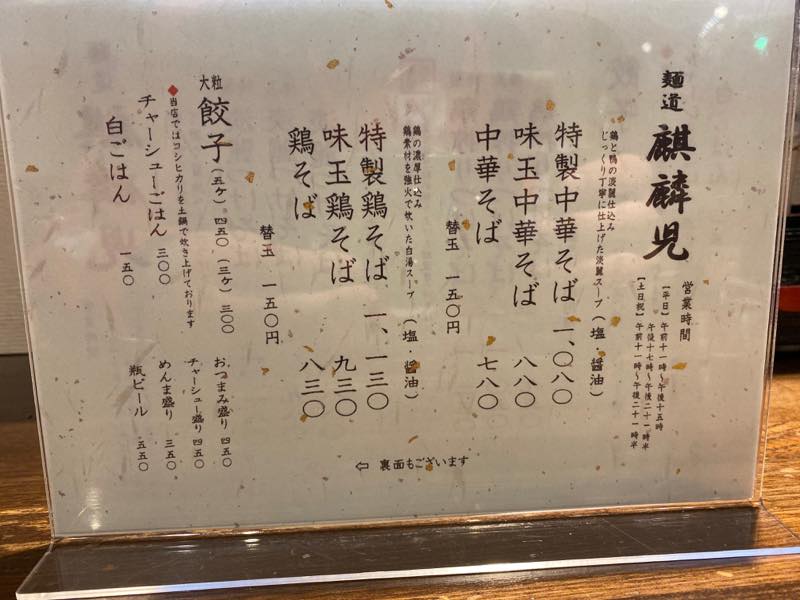 麺道 麒麟児
営業時間
【平日】午前十一時～午後十五時
午後十七時～午後二十一時半
【土日祝】午前十一時～午後二十一時半
鶏と鴨の淡麗仕込み
じっくり丁寧に仕上げた淡麗スープ（塩・醤油）
特製中華そば 一、〇八〇
味玉中華そば 八八〇
中華そば 七八〇
替玉 一五〇円
鶏の濃厚仕込み
鶏素材を強火で炊いた白湯スープ（塩・醤油）
特製鶏そば 一、一三〇
味玉鶏そば 九三〇
鶏そば 八三〇
替玉 一五〇円
大粒 餃子（五ケ）四五〇（三ケ）三〇〇
◆当店ではコシヒカリを土鍋で炊き上げております
チャーシューごはん 三〇〇
白ごはん 一五〇
おつまみ盛り 四五〇
チャーシュー盛り 四五〇
めんま盛り 三五〇
瓶ビール 五五〇
⇦ 裏面もございます